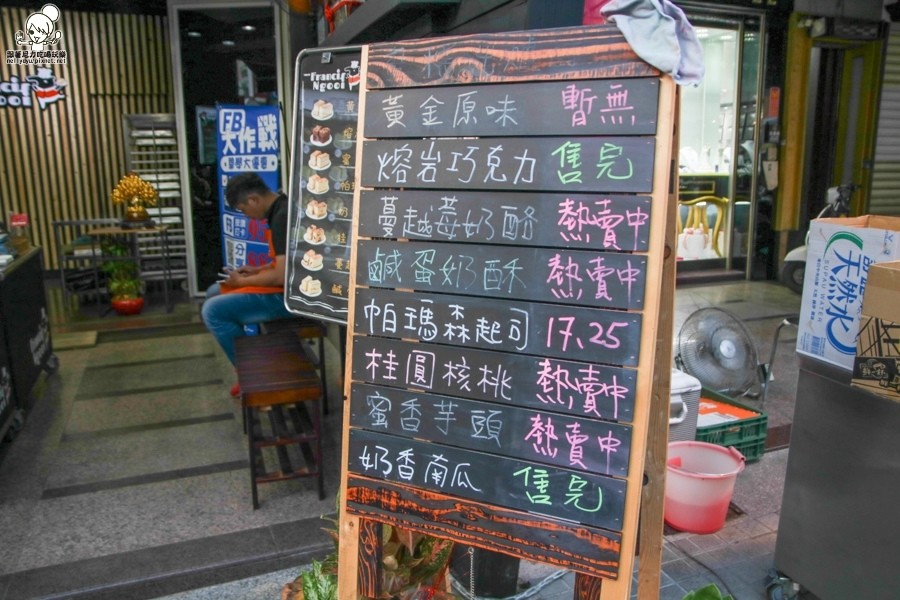 跟著尼力吃喝玩樂
nellydyu.pixnet.net
Francis Ngooi
Francis
Ngooi
FB
大作戰
黃金原味 暫無
熔岩巧克力 售完
蔓越莓奶酪 熱賣中
鹹蛋奶酥 熱賣中
帕瑪森起司 17.25
桂圓核桃 熱賣中
蜜香芋頭 熱賣中
奶香南瓜 售完
天然水